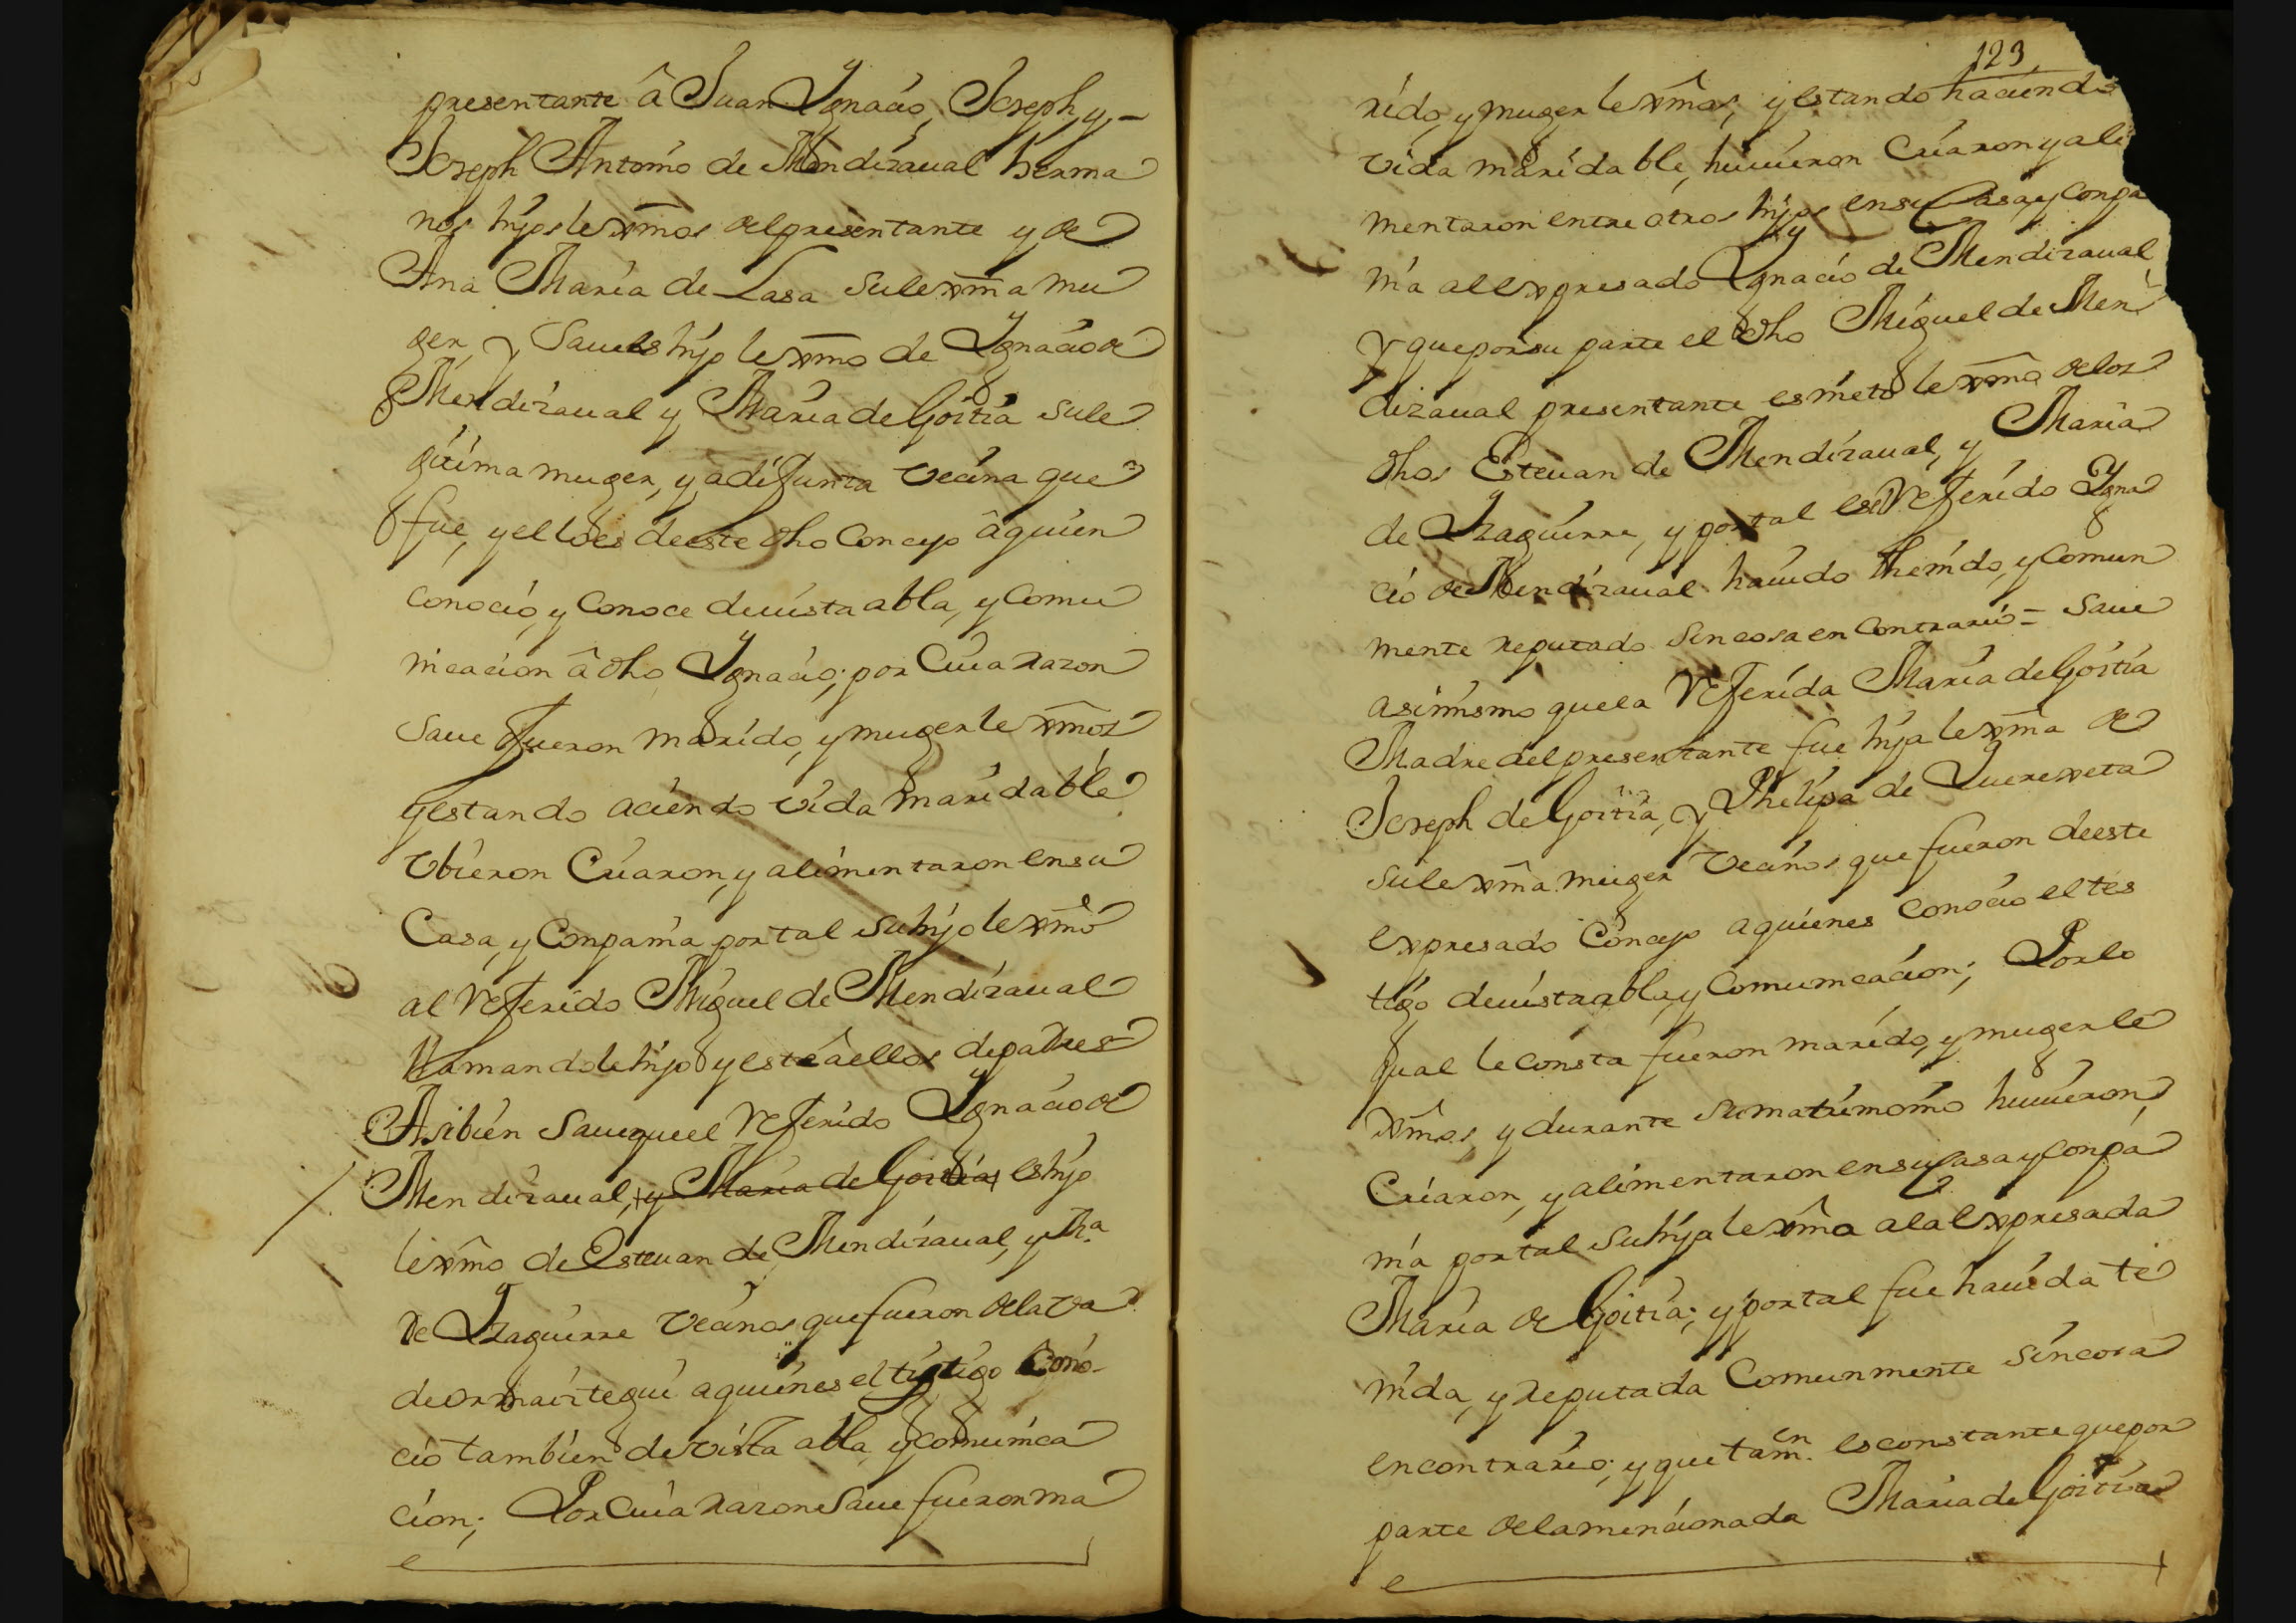 presentante â Juan Ygnacio, Joseph, y,-
Joseph Antonio de Mendizaual herma
nos hijos lexmos del presentante y de
Ana Maria de Lasa su lexma mu
ger, y Saue es hijo lexmo de Ygnacio de
Mendizaual y Maria de Goitia su le
gitima muger, y adifunta vecina que
fue, y el lo es de este dho Concejo â quien
conocio, y Conoce de uista abla, y Comu
nicacion â dho Ygnacio; por Cuia razon
saue fueron marido, y muger lexmos
y estando aciendo vida maridable
Vbieron Criaron, y alimentaron en su
Casa, y Compania por tal su hijo lexmo
al Referido Miguel de Mendizaual
llamandole hijo y este â ellos de padres
Asibien Saue que el Referido Ygnacio de
Mendizaual, y Maria de Goitia, es hijo
lexmo de Esteuan de Mendizaual, y Ma
de Yzaguirre vecinos que fueron de la va
de ormaiztegui a quienes el tigtigo Cono-
cio tambien de vista abla, y comunica
cion; Por Cuia razon Saue fueron ma
123
rido, y muger lexmos, y estando haciendo
vida maridable, huuieron Criaron y ali
mentaron entre otros hijos en su Casa y Conpa
nia al expresado Ygnacio de Mendizaual
Y que por su parte el dho Miguel de Men
dizaual presentante es nieto lexmo de los
dhos Esteuan de Mendizaual, y Maria
de Yzaguirre, y por tal es el Referido Ygna
cio de Mendizaual hauido thenido, y Comun
mente reputado sin cosa en Contrario = Saue
asimismo que la Referida Maria de Goitia
Madre del presentante fue hija lexma de
Joseph de Goitia, y Phelipa de Querexeta
su lexma muger vecinos que fueron de este
expresado Concejo a quienes Conocio el tes
tigo de uista abla, y Comunicacion; Por lo
qual le consta fueron marido, y muger le
xmos, y durante su matrimonio huuieron,
Criaron, y alimentaron en su Casa y Conpa
nia por tal su hija lexma a la expresada
Maria de Goitia; y por tal fue hauida te
nida, y reputada Comunmente sin cosa
en contrario; y que tamen es constante que por
parte de la mencionada Maria de Goitia